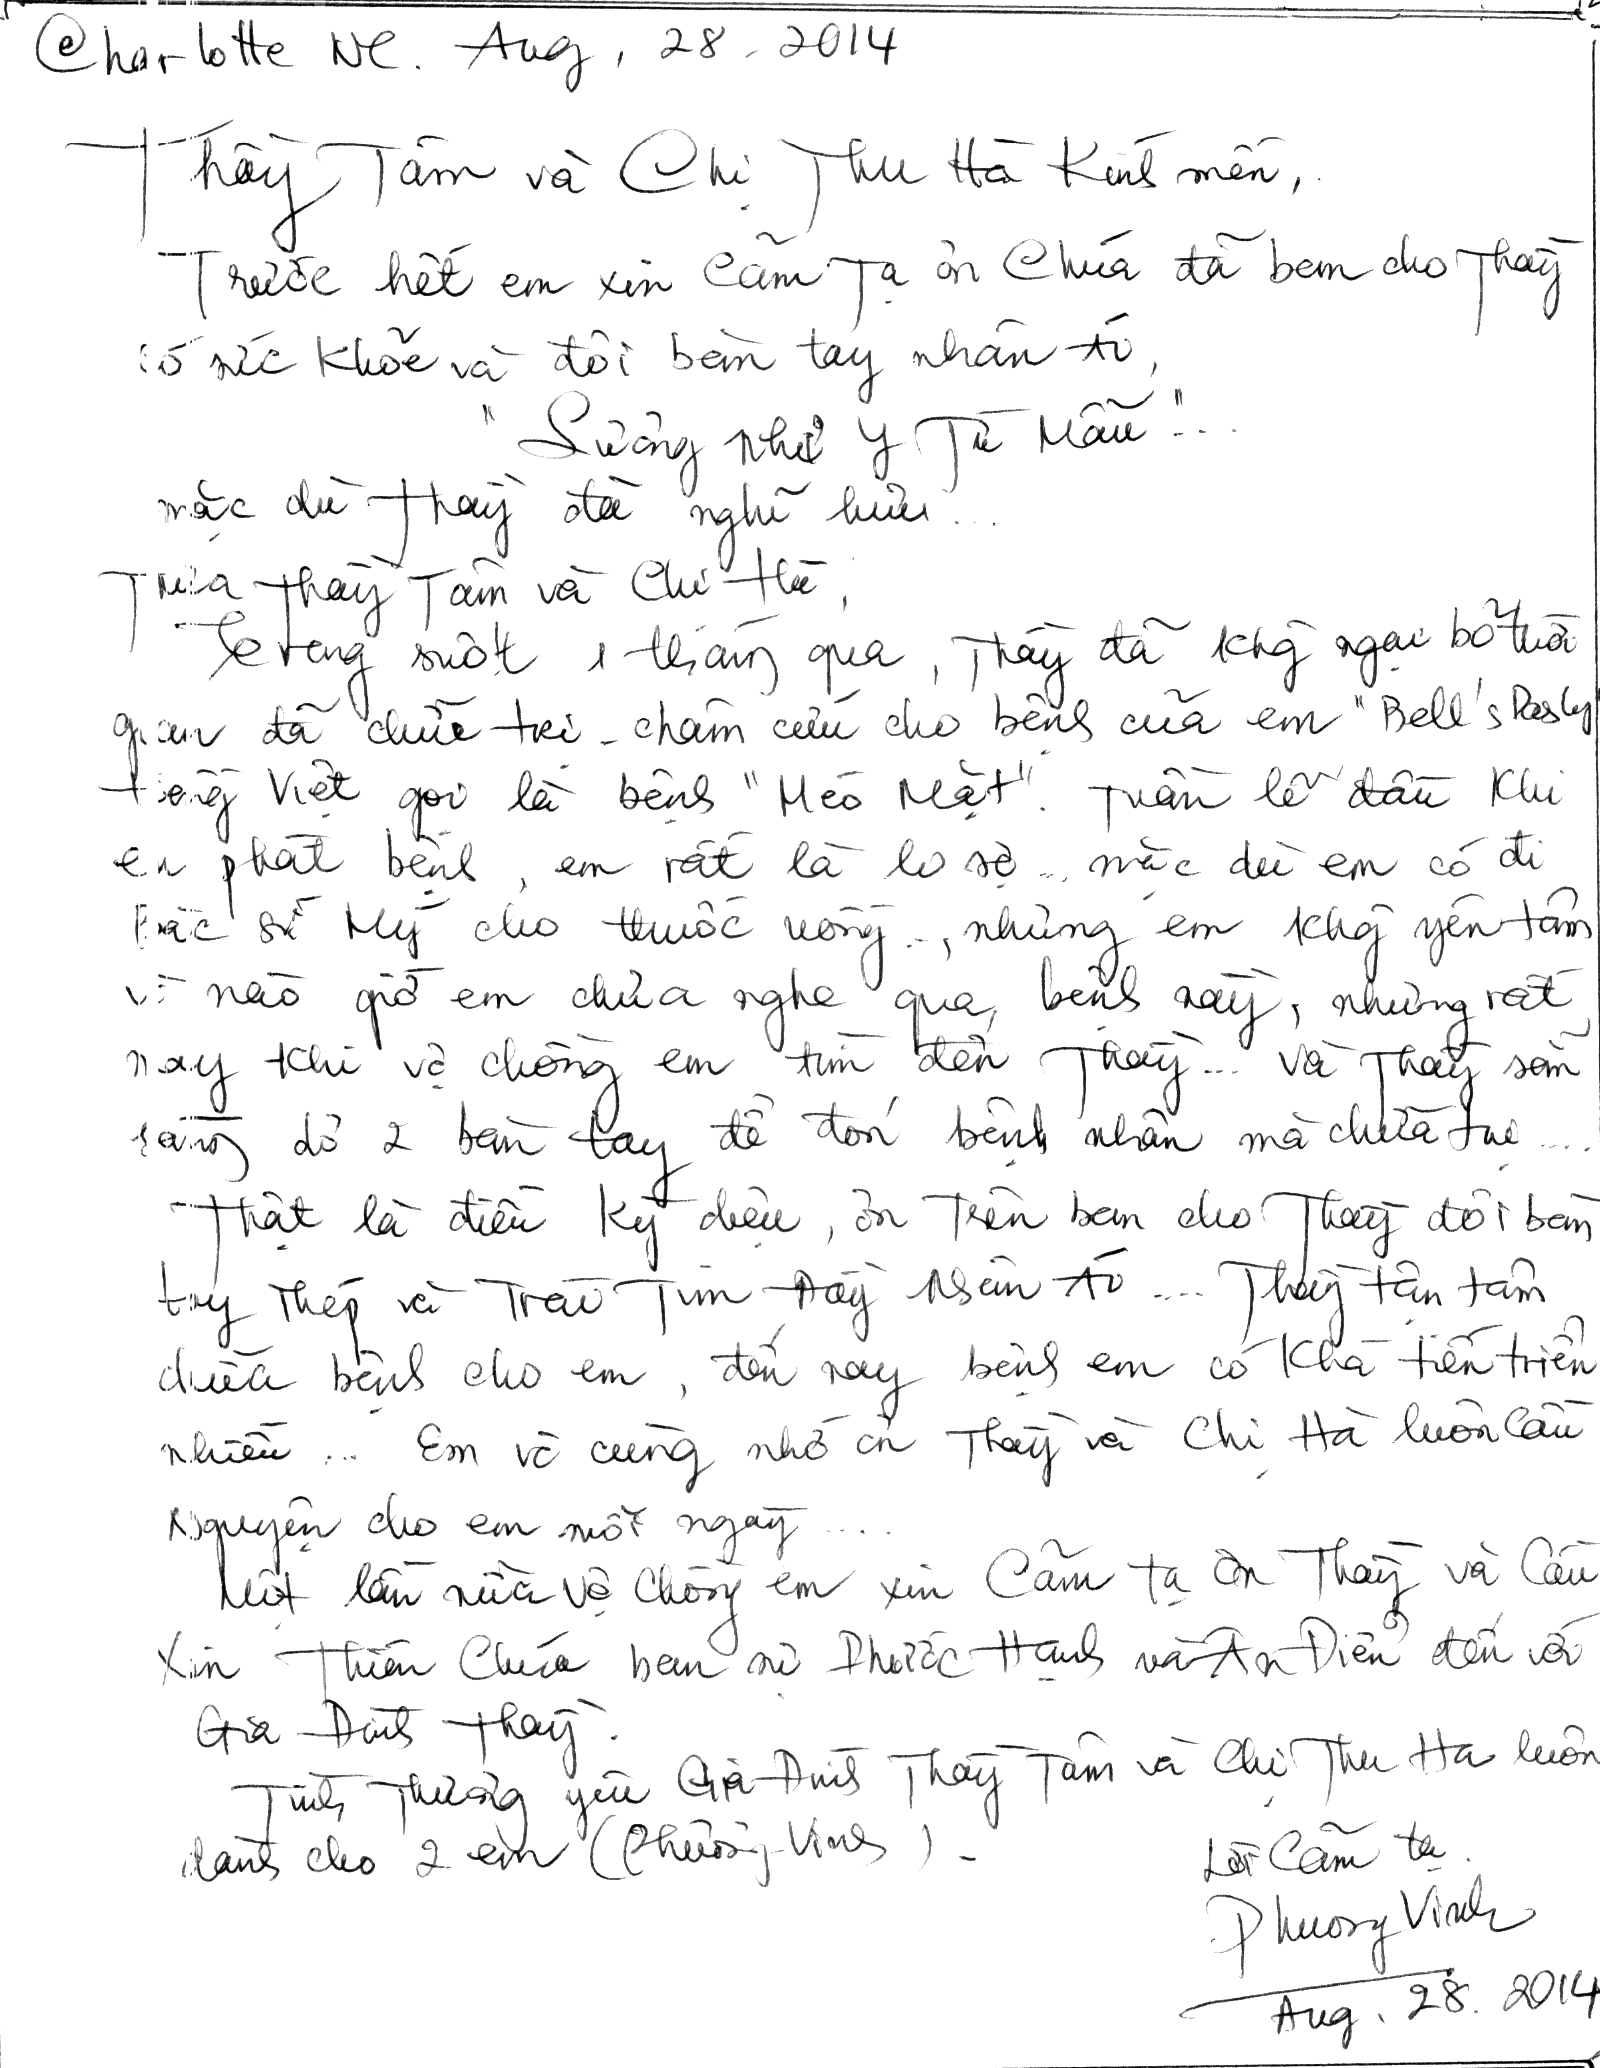 Charlotte NC. Aug, 28. 2014
Thầy Tâm và Chị Thu Hà Kính mến,
Trước hết em xin Cãm Tạ ơn Chúa đã ban cho Thầy
có sức khõe và đôi bàn tay nhân từ,
"Lương Như Y Từ Mẫu"...
mặc dù Thầy đã nghĩ hưu...
Thưa Thầy Tâm và Chị Hà,
Trong suốt 1 tháng qua, Thầy đã khg ngại bỏ thời
gian đã chữa trị - châm cứu cho bệnh cũa em "Bell's Pasly
tiếng Việt gọi là bệnh "Méo Mặt". Tuần lễ đầu khi
em phát bệnh, em rất là lo sợ... mặc dù em có đi
Bác sĩ Mỹ cho thuốc uống..., nhưng em khg yên tâm
vì nào giờ em chưa nghe qua bệnh này, nhưng rất
may khi vợ chồng em tìm đến Thầy... và Thầy sẵn
sàng dơ 2 bàn tay để đón bệnh nhân mà chữa trị....
Thật là điều kỳ diệu, ơn Trên ban cho Thầy đôi bàn
tay Thép và Trái Tim Đầy Nhân từ.... Thầy tận tâm
chữa bệnh cho em, đến nay bệnh em có khá tiến triển
nhiều... Em vô cùng nhớ ơn Thầy và Chị Hà luôn Cầu
Nguyện cho em mỗi ngày....
Một lần nữa vợ chồng em xin Cãm tạ Ơn Thầy và Cầu
Xin Thiên Chúa ban sự Phước Hạnh và Ân Điển đến với
Gia Đình Thầy.
Tình Thương yêu Gia Đình Thầy Tâm và Chị Thu Hà luôn
dành cho 2 em (Phương-Vinh) -
Lời Cãm tạ.
Phuong Vinh
Aug. 28. 2014